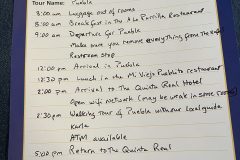 Tour Name: Puebla
3:00 am Luggage out of rooms
5:00 am Breakfast in the A la Parrilla Restaurant
9:00 am Departure for Puebla
Make sure you remove everything from the safe
Restroom stop
12:00 pm Arrival in Puebla
12:30 pm Lunch in the Mi Viejo Pueblito restaurant
2:00 pm Arrival to the Quinta Real Hotel
Open wifi Network (may be weak in some rooms)
2:30 pm Walking Tour of Puebla with our local guide
Karla
ATM available
5:00 pm Return to The Quinta Real